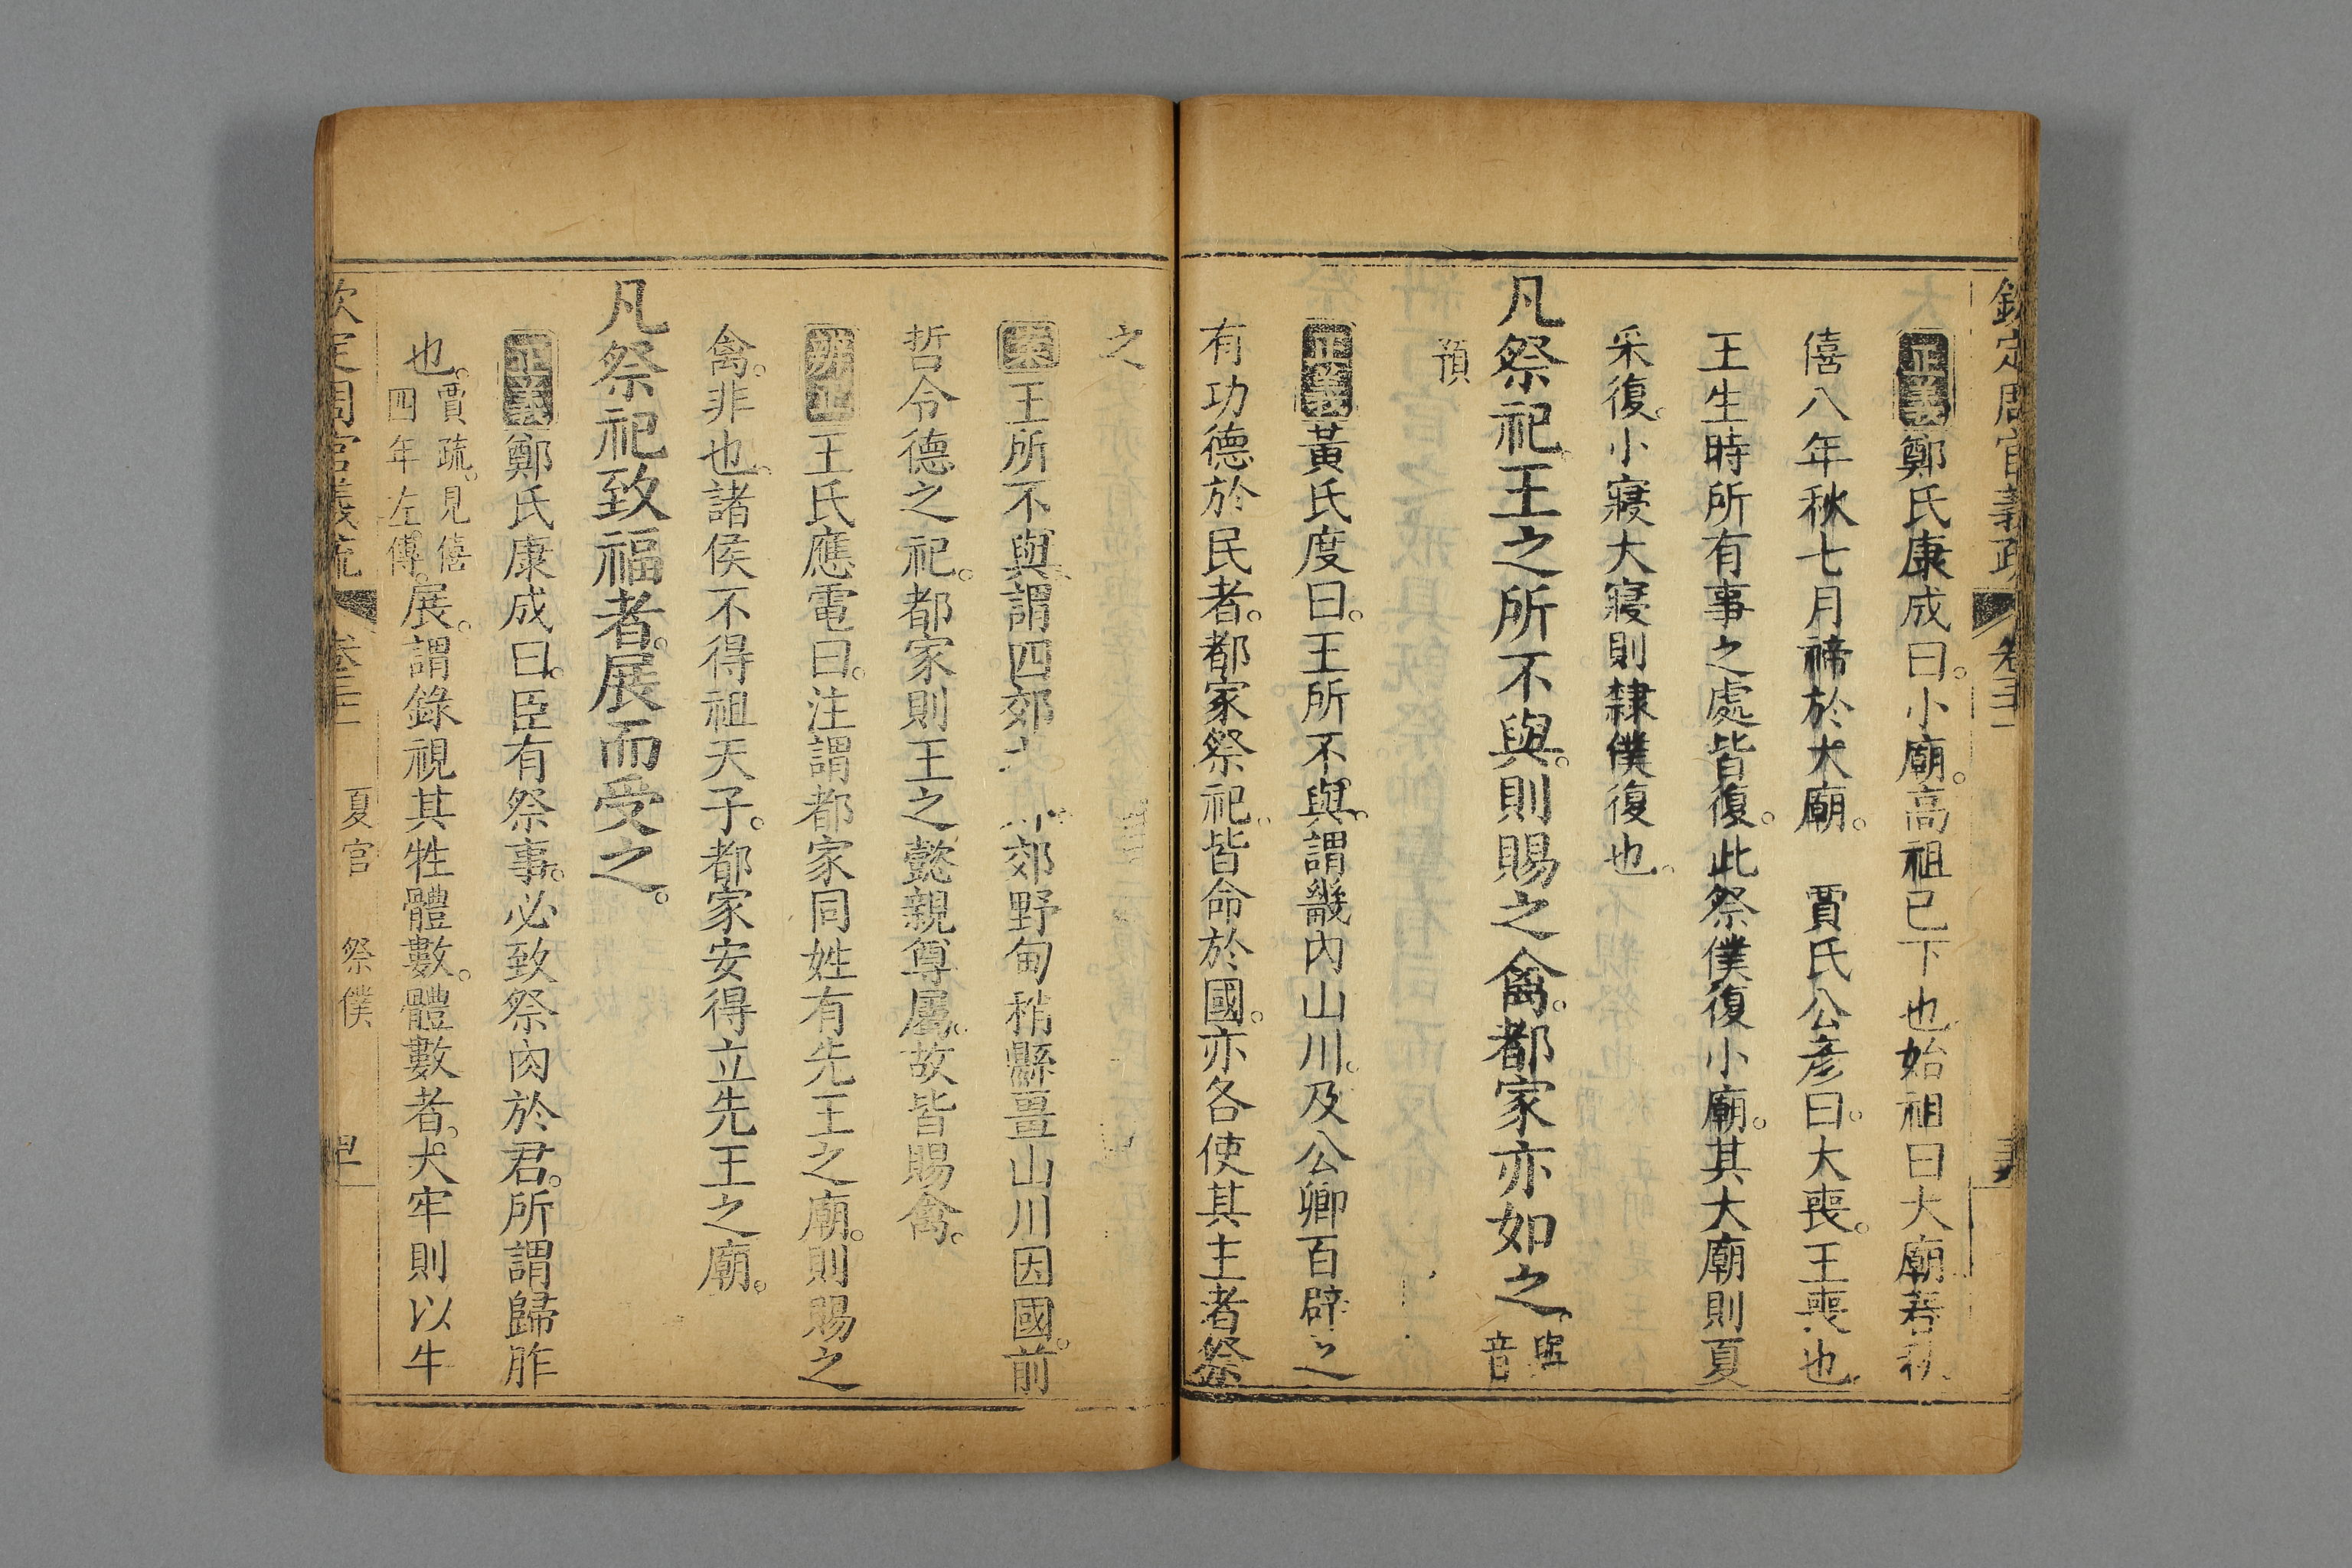 正義鄭氏康成曰小廟高祖已下也始祖曰大廟春秋
僖八年秋七月禘於大廟　賈氏公彥曰大喪王喪也
王生時所有事之處皆復此祭僕復小廟其大廟則夏
采復小寢大寢則隸僕復也
凡祭祀王之所不與則賜之禽都家亦如之與音
預
正義黃氏度曰王所不與謂畿內山川及公卿百辟之
有功德於民者都家祭祀皆命於國亦各使其主者祭
之
案王所不與謂四郊之郊野甸稍縣畺山川因國前
哲令德之祀都家則王之懿親尊屬故皆賜禽
辨正王氏應電曰注謂都家同姓有先王之廟則賜之
禽非也諸侯不得祖天子都家安得立先王之廟
凡祭祀致福者展而受之
正義鄭氏康成曰臣有祭事必致祭肉於君所謂歸胙
也賈疏見僖四年左傳展謂錄視其牲體數體數者犬牢則以牛
欽定周官義疏　夏官　祭僕